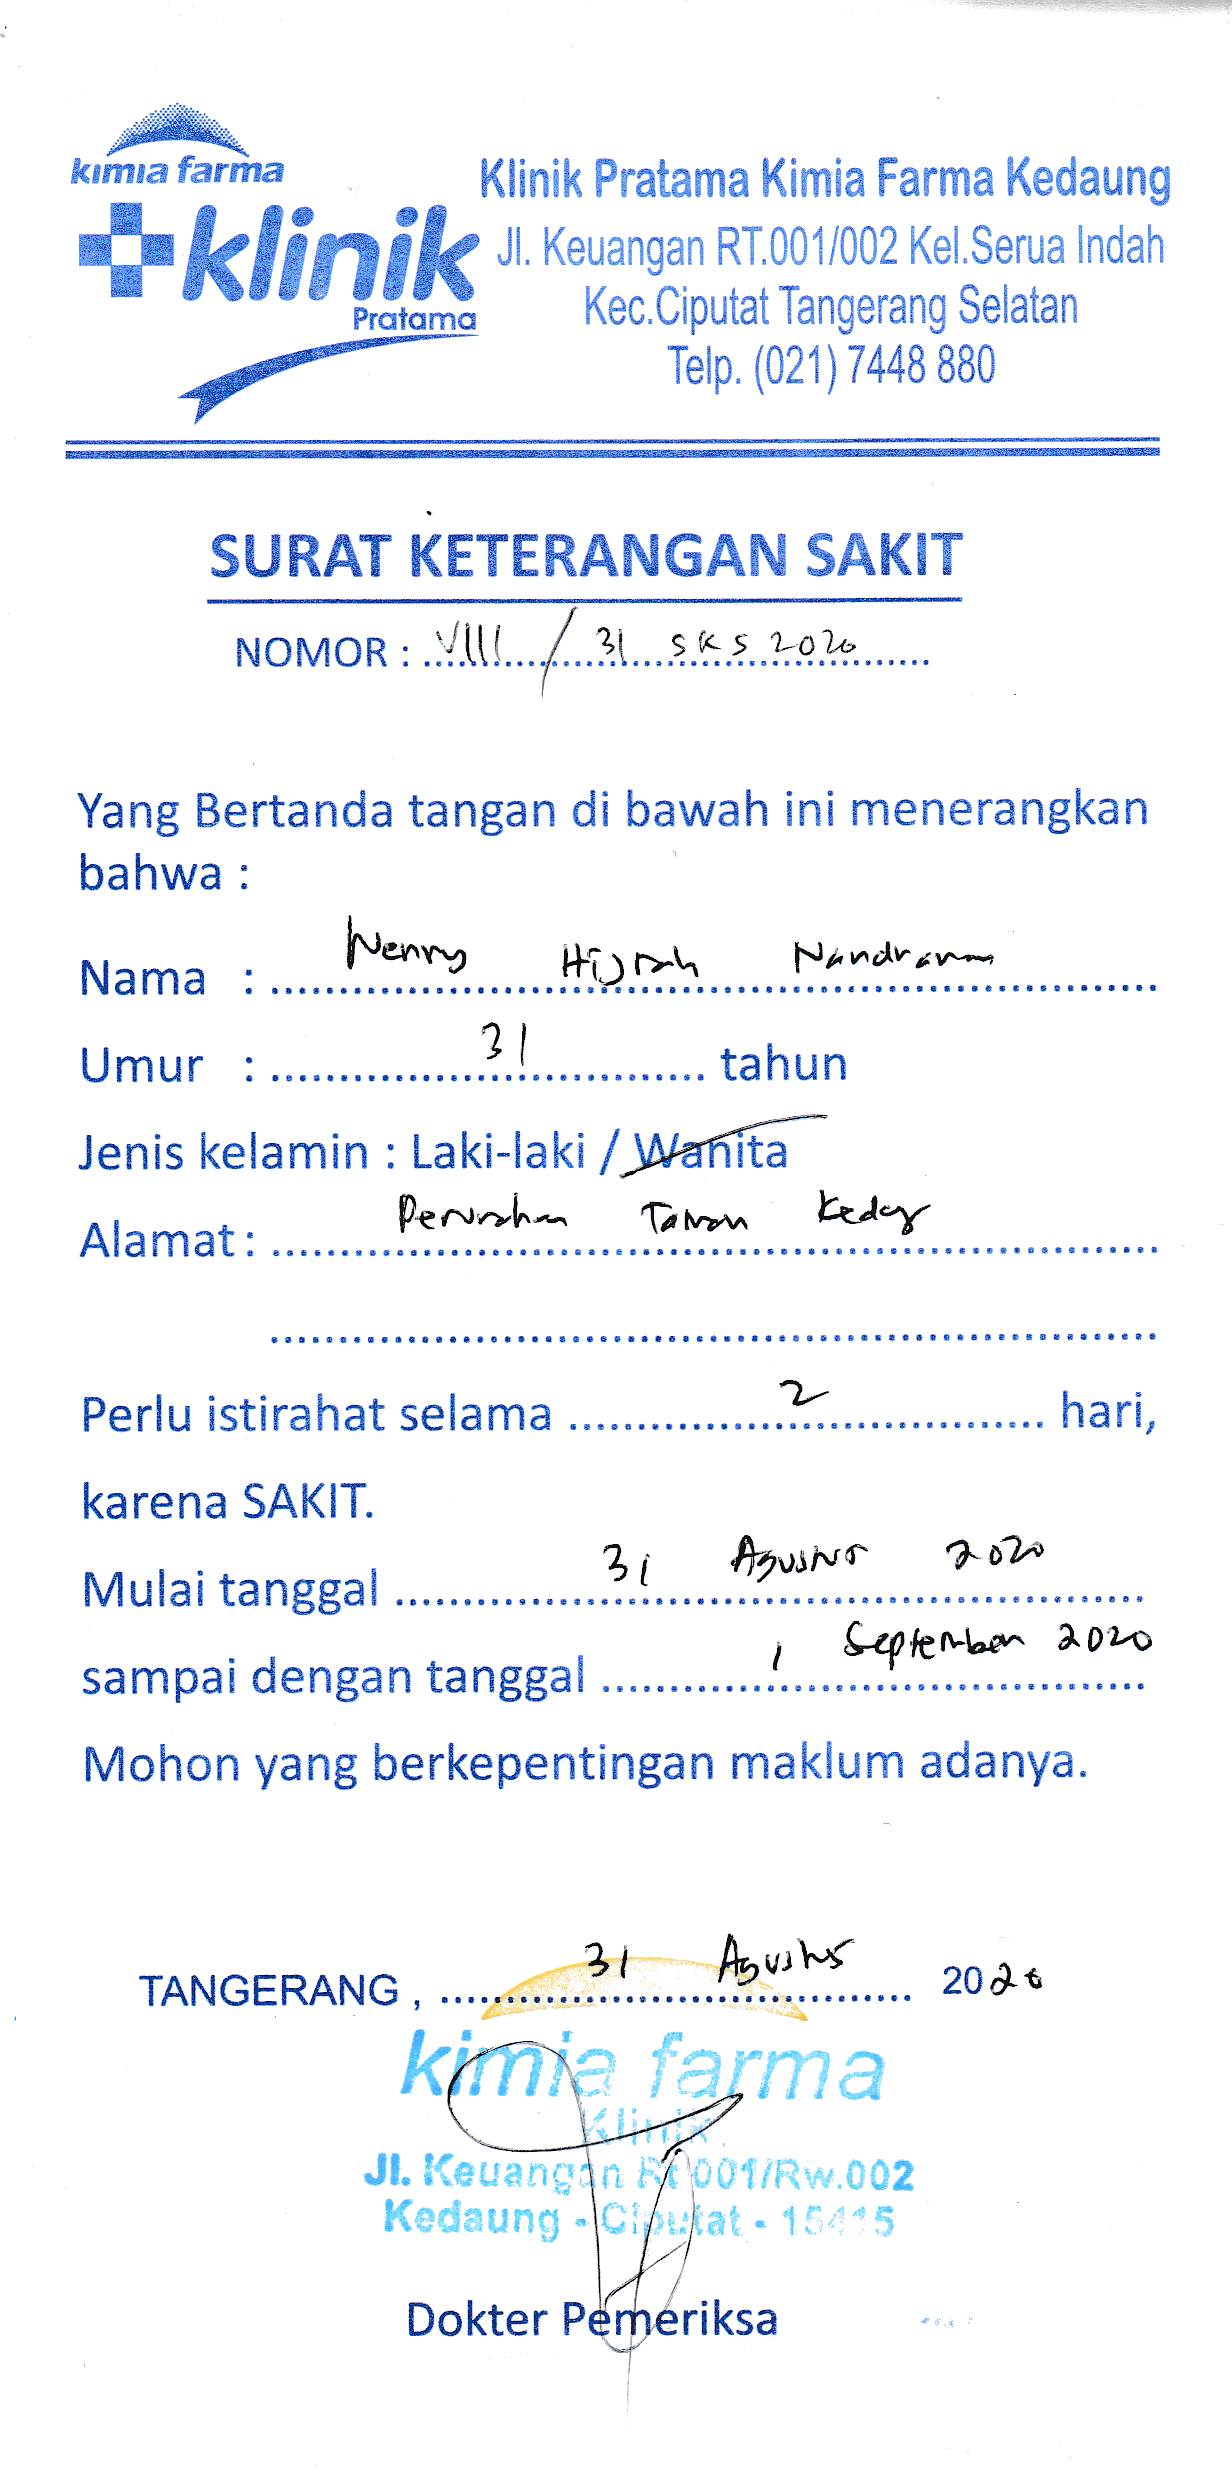 kimia farma
klinik
Pratama
Klinik Pratama Kimia Farma Kedaung
Jl. Keuangan RT.001/002 Kel.Serua Indah
Kec.Ciputat Tangerang Selatan
Telp. (021) 7448 880
SURAT KETERANGAN SAKIT
NOMOR : VIII / 31 SKS 2020
Yang Bertanda tangan di bawah ini menerangkan
bahwa :
Nama : Hijrah
Umur : 31 tahun
Jenis kelamin : Laki-laki / Wanita
Alamat : Taman
Perlu istirahat selama 2 hari,
karena SAKIT.
Mulai tanggal 31 Agustus 2020
sampai dengan tanggal 1 September 2020
Mohon yang berkepentingan maklum adanya.
TANGERANG , 31 Agustus 2020
kimia farma
Klinik
Jl. Keuangan Rt 001/Rw.002
Kedaung - Ciputat - 15415
Dokter Pemeriksa